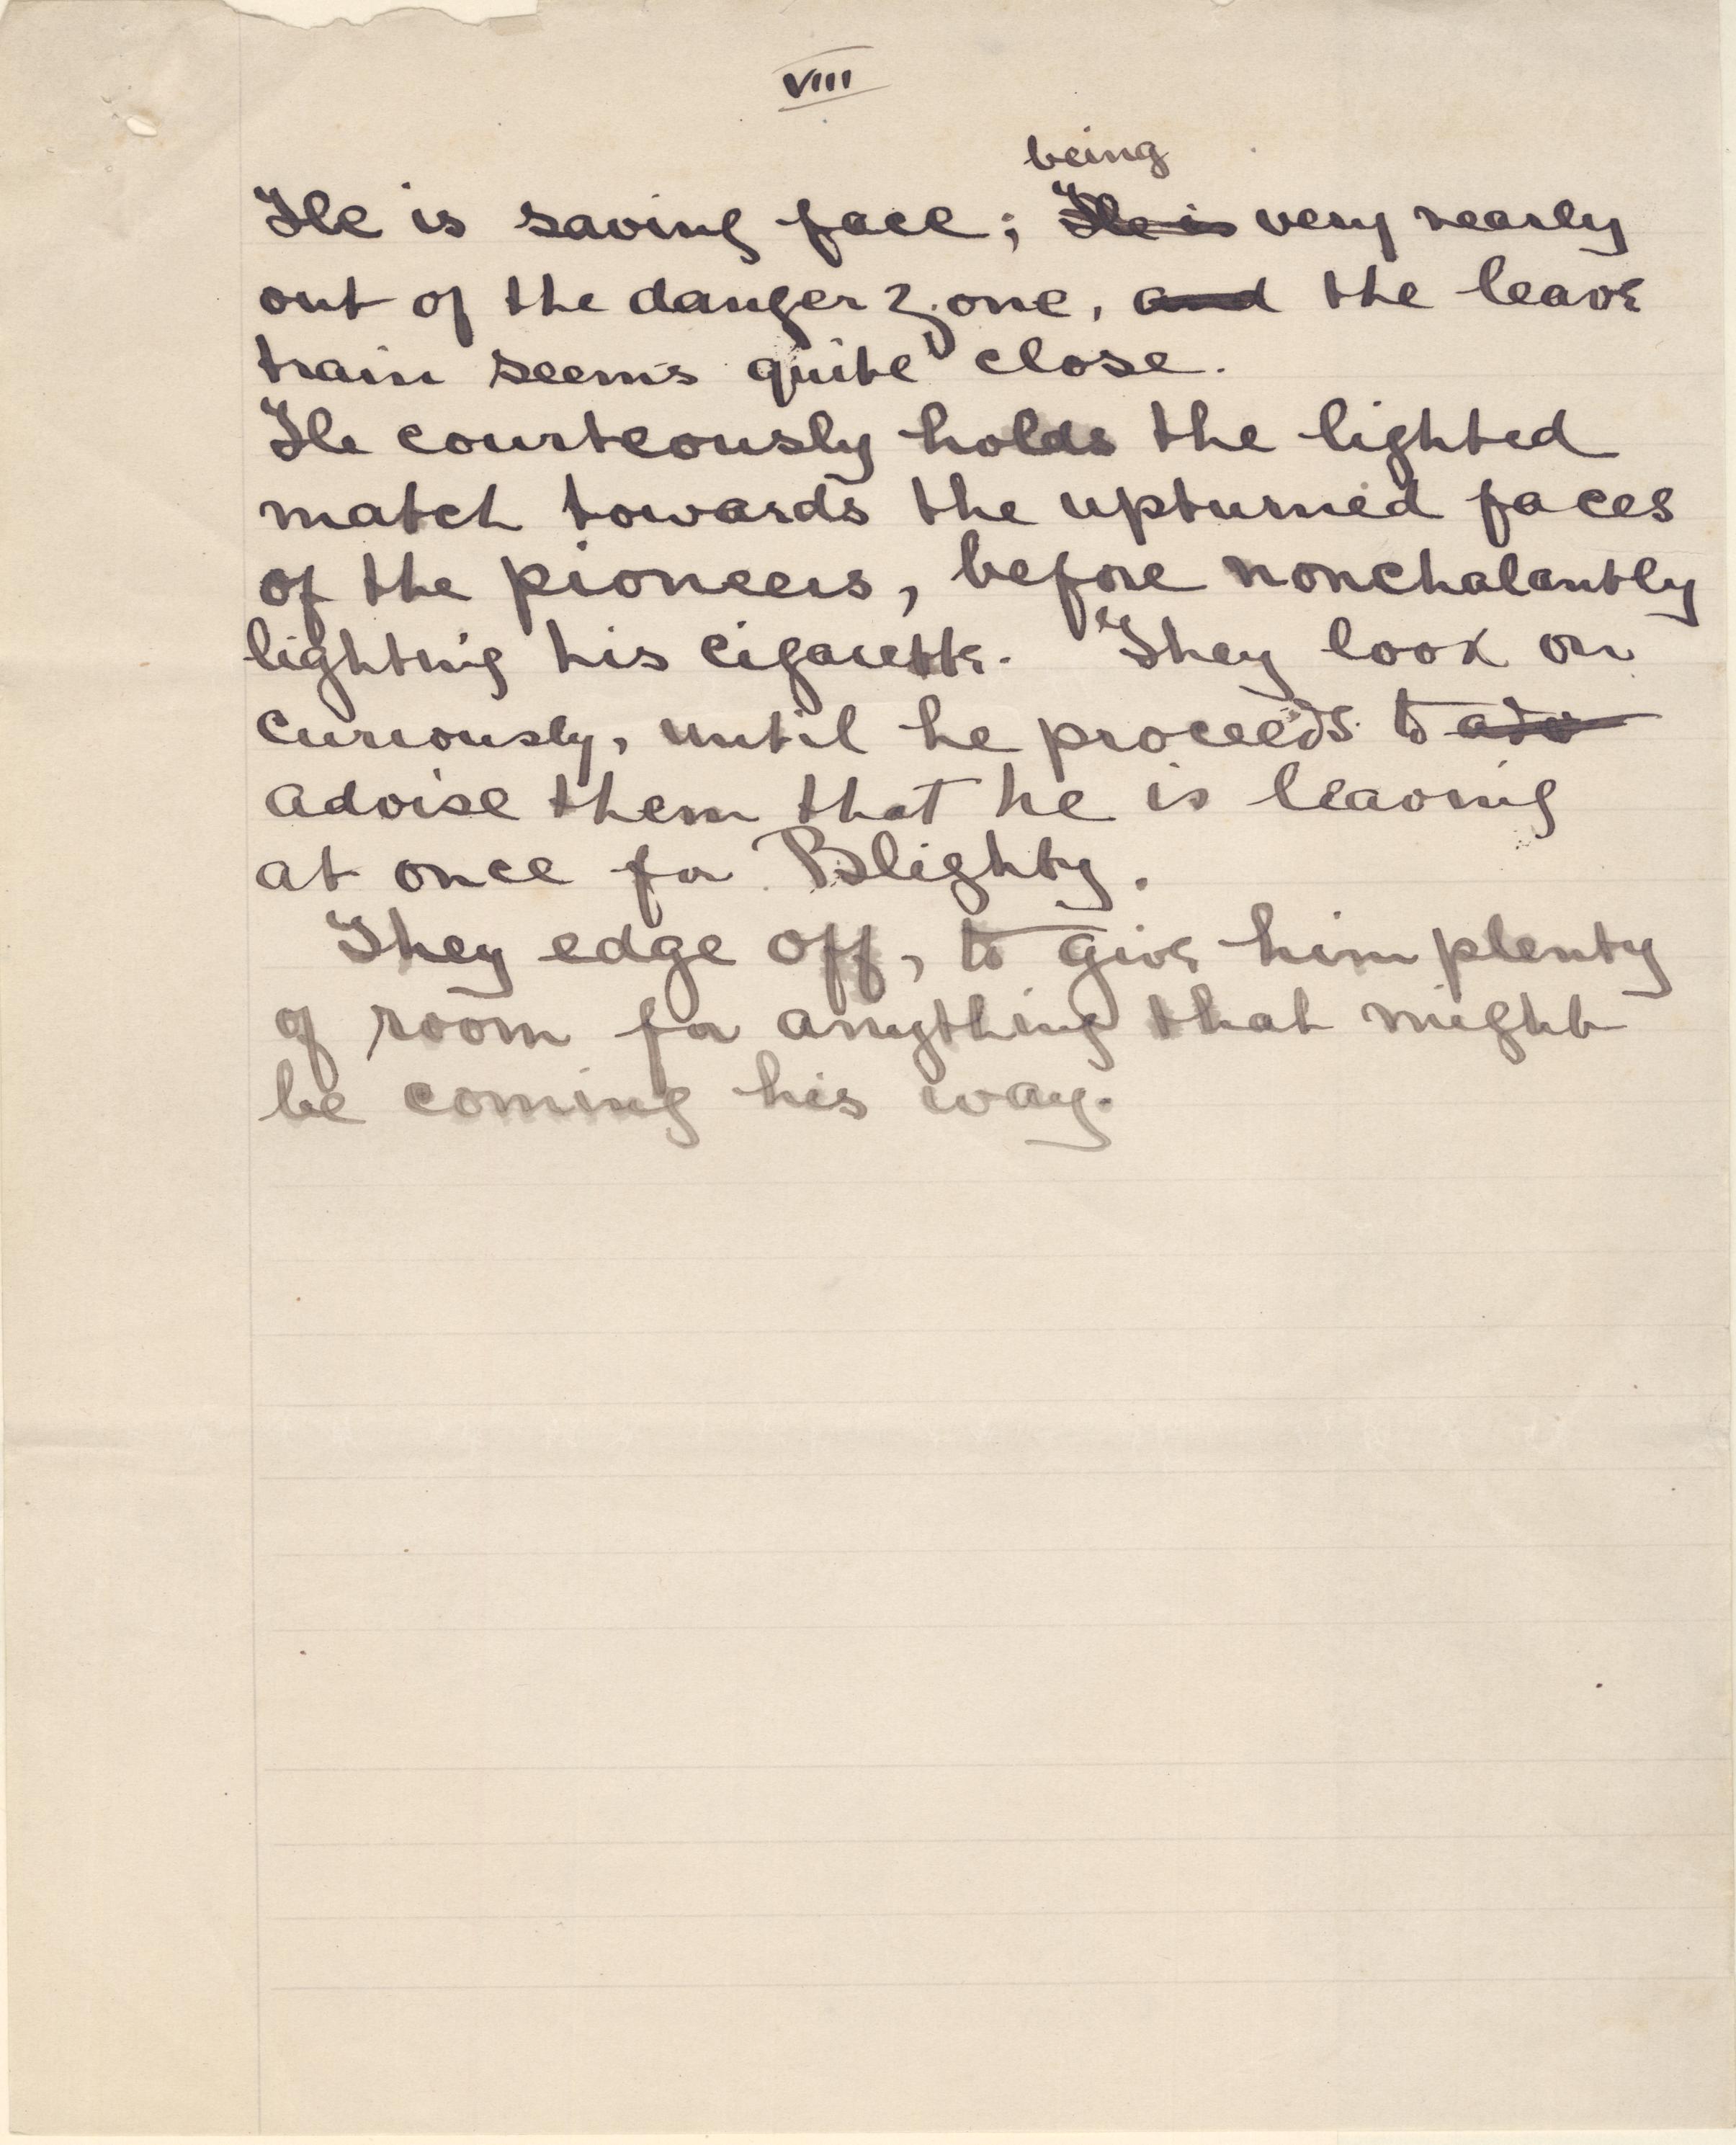 VIII
being
He is saving face; He is very nearly
out of the danger zone, and the leave
train seems quite close.
He courteously holds the lighted
match towards the upturned faces
of the pioneers, before nonchalantly
lighting his cigarette. They look on
curiously, until he proceeds to adv
advise them that he is leaving
at once for Blighty.
They edge off, to give him plenty
of room for anything that might
be coming his way.